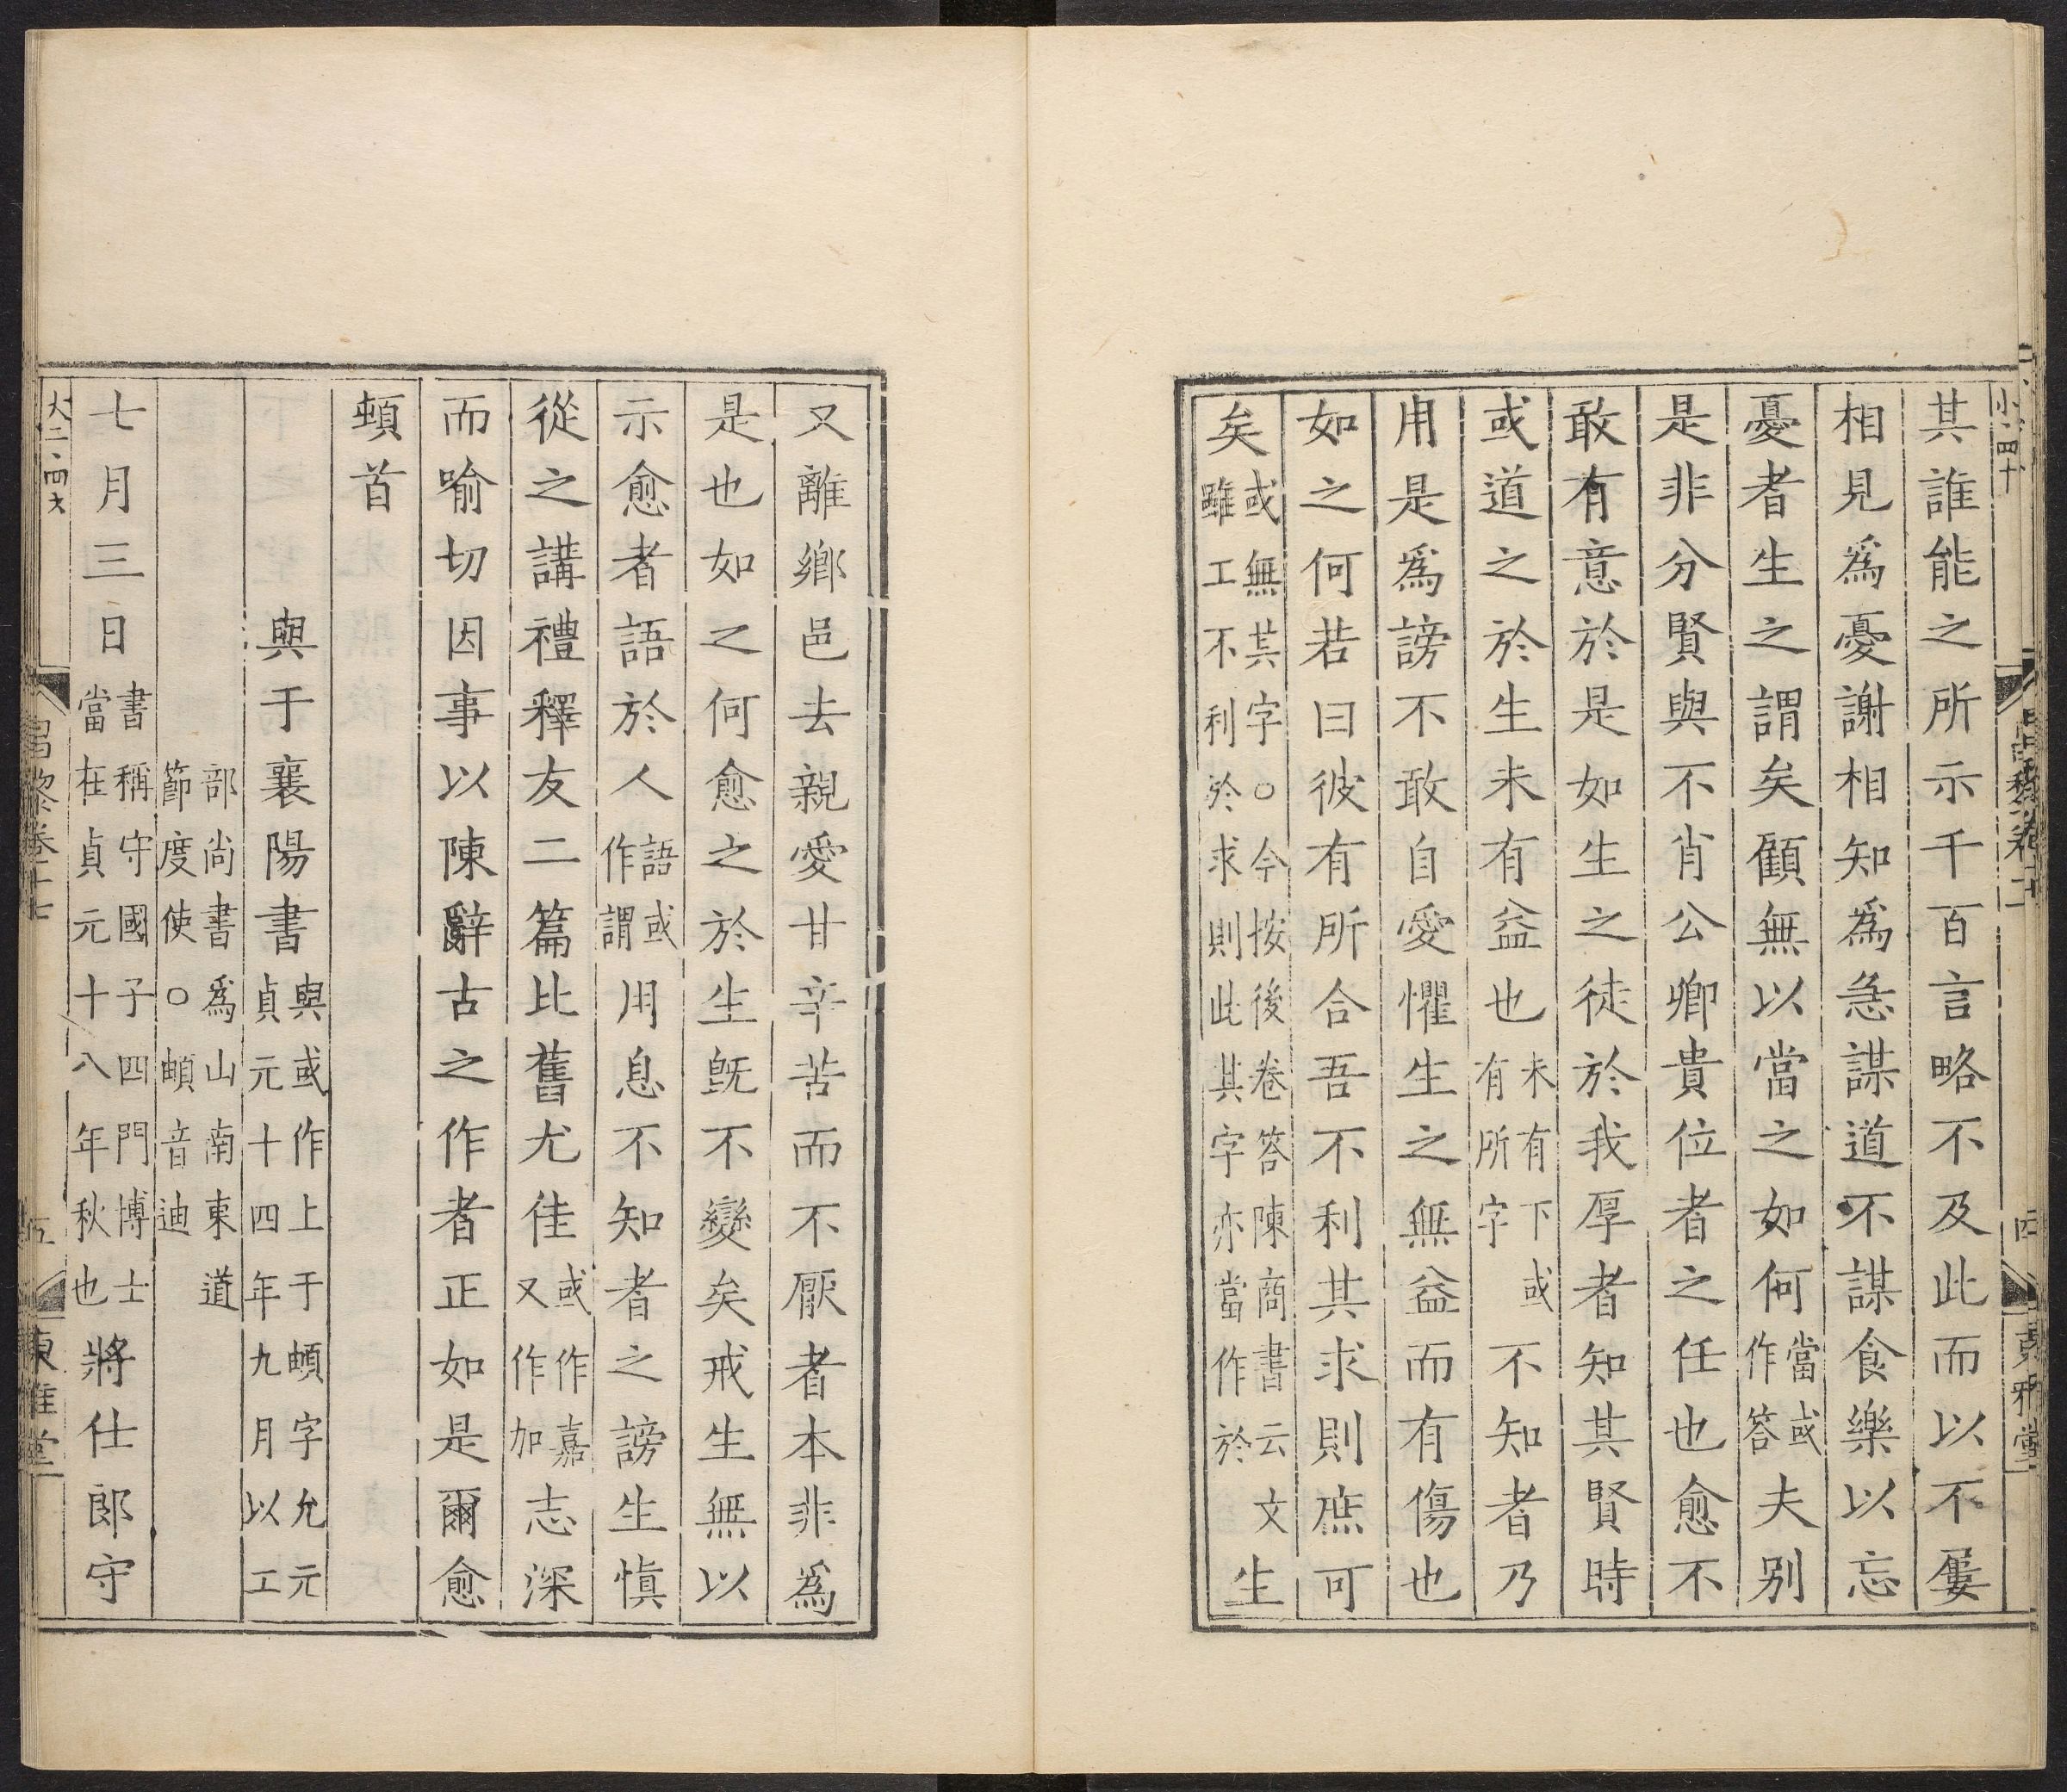 小四十
其誰能之所示千百言略不及此而以不屢
相見爲憂謝相知爲急謀道不謀食樂以忘
憂者生之謂矣顧無以當之如何當或作答夫别
是非分賢與不肖公卿貴位者之任也愈不
敢有意於是如生之徒於我厚者知其賢時
或道之於生未有益也未有下或有所字不知者乃
用是爲謗不敢自愛懼生之無益而有傷也
如之何若曰彼有所合吾不利其求則庶可
矣或無其字○今按後卷答陳商書云文雖工不利於求則此其字亦當作於生
又離鄉邑去親愛甘辛苦而不厭者本非爲
是也如之何愈之於生旣不變矣戒生無以
示愈者語於人語或作謂用息不知者之謗生愼
從之講禮釋友二篇比舊尤佳或作嘉又作加志深
而喻切因事以陳辭古之作者正如是爾愈
頓首
與于襄陽書與或作上于頔字允元貞元十四年九月以工
部尚書爲山南東道節度使○頔音迪
七月三日書稱守國子四門博士當在貞元十八年秋也將仕郎守
大二四大
昌黎卷十七
五
東雅堂